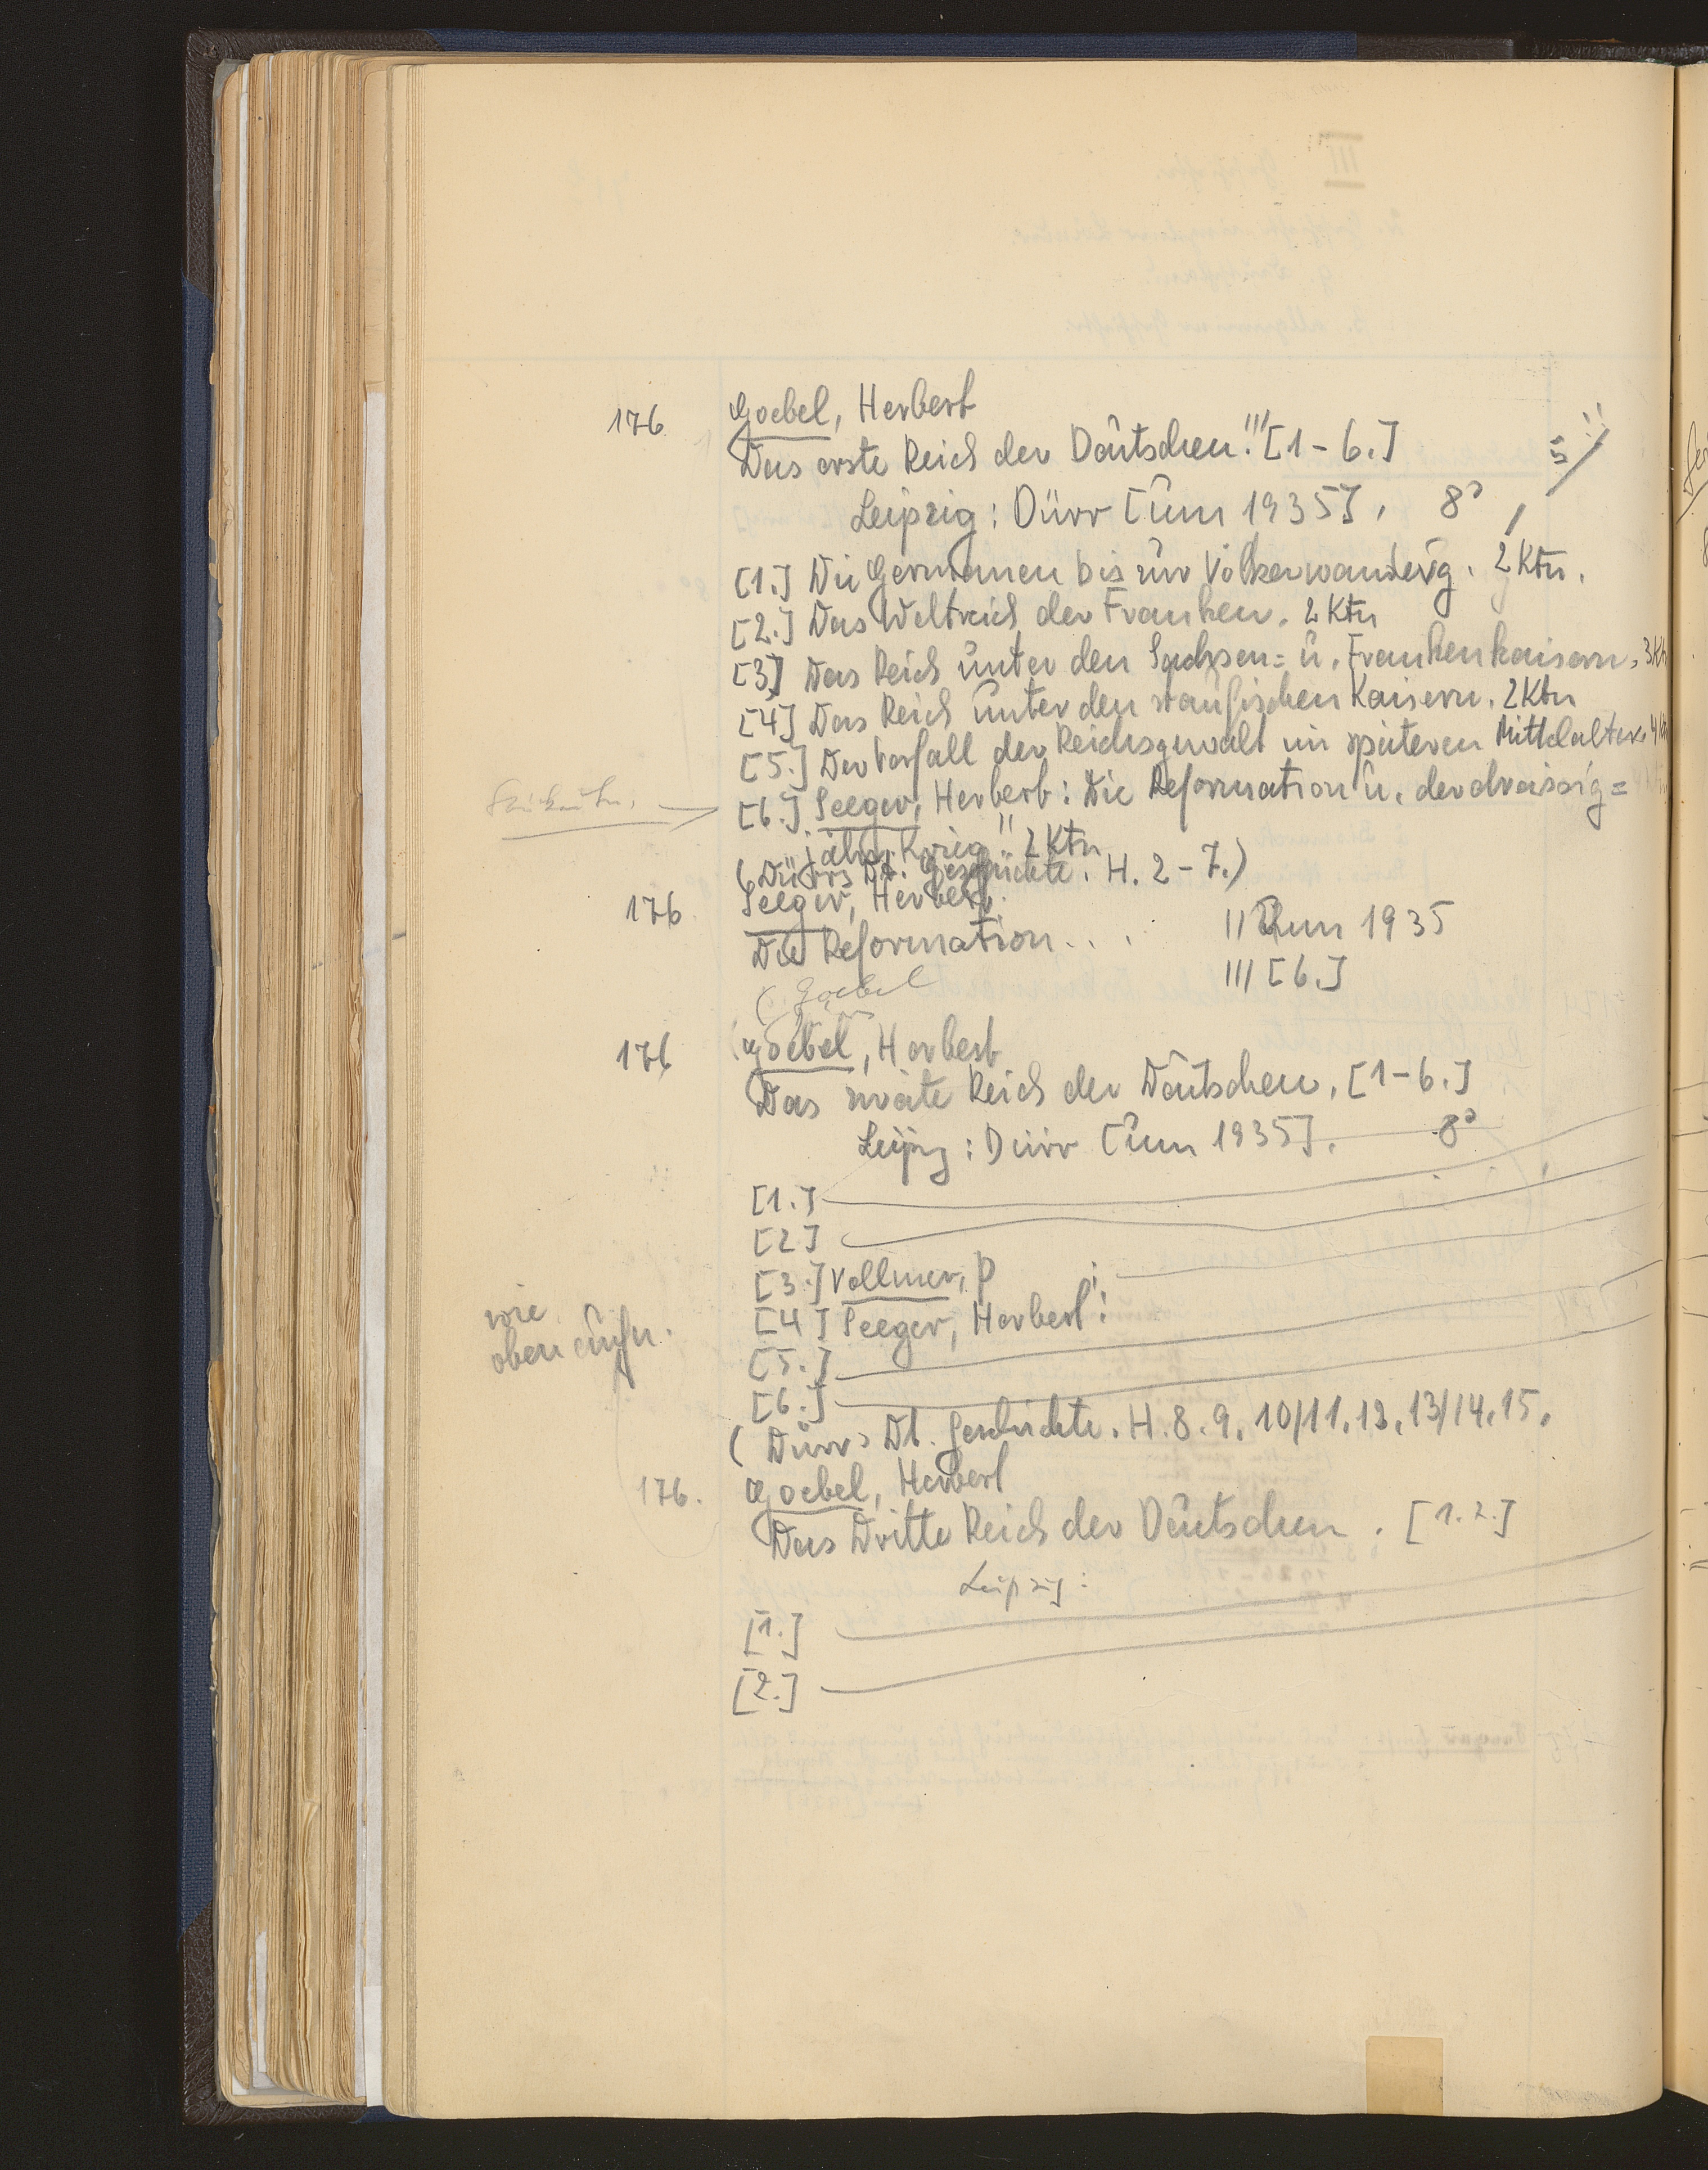 176 Goebel, Herbert
Das erste Reich der Deutschen. [1-6.]
Leipzig: Dürr [um 1935]. 8°
[1.] Die Germanen bis zur Völkerwanderg. 2 Ktn.
[2.] Das Weltreich der Franken. 2 Ktn
[3] Das Reich unter den Sachsen= u. Frankenkaisern. 3 Ktn
[4] Das Reich unter den staufischen Kaisern. 2 Ktn
[5.] Der Verfall der Reichsgewalt im späteren Mittelalter. 4 Ktn
[6.] Seeger, Herbert: Die Reformation u. der dreissig=
jähr. Krieg. 2 Ktn
(Dürrs Dt. Geschichte. H. 2-7.)
176 Seeger, Herbert
Die Reformation . . .
II um 1935
III [6.]
(Goebel
176 Goebel, Herbert
Das zweite Reich der Deutschen. [1-6.]
Leipzg: Dürr [um 1935]. 8°
[1.]
[2]
[3.] Vollmer, P :
[4] Seeger, Herbert:
wie
oben aufn.
[5.]
[6.]
(Dürrs Dt. Geschichte. H. 8. 9. 10/11. 12. 13/14. 15.
176. Goebel, Herbert
Das Dritte Reich der Deutschen. [1.2.]
Leipzig:
[1.]
[2.]